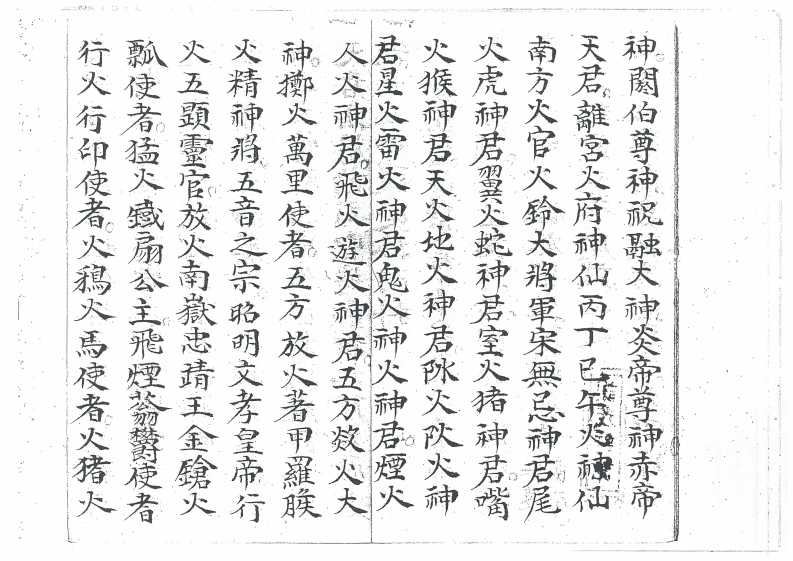 神閼伯尊神祝融大神炎帝尊神赤帝
天君離宮火府神仙丙丁巳午火神仙
南方火官火鈴大將軍宋無忌神君尾
火虎神君翼火蛇神君室火猪神君嘴
火猴神君天火地火神君 火 火神
君星火雷火神君鬼火神火神君煙火
人火神君飛火遊火神君五方熒火大
神擲火萬里使者五方放火著甲羅睺
火精神將五音之宗昭明文孝皇帝行
火五顕靈官放火南嶽忠靖王金鎗火
瓢使者猛火鐵扇公主飛煙蓊欝使者
行火行印使者火鵶火馬使者火猪火